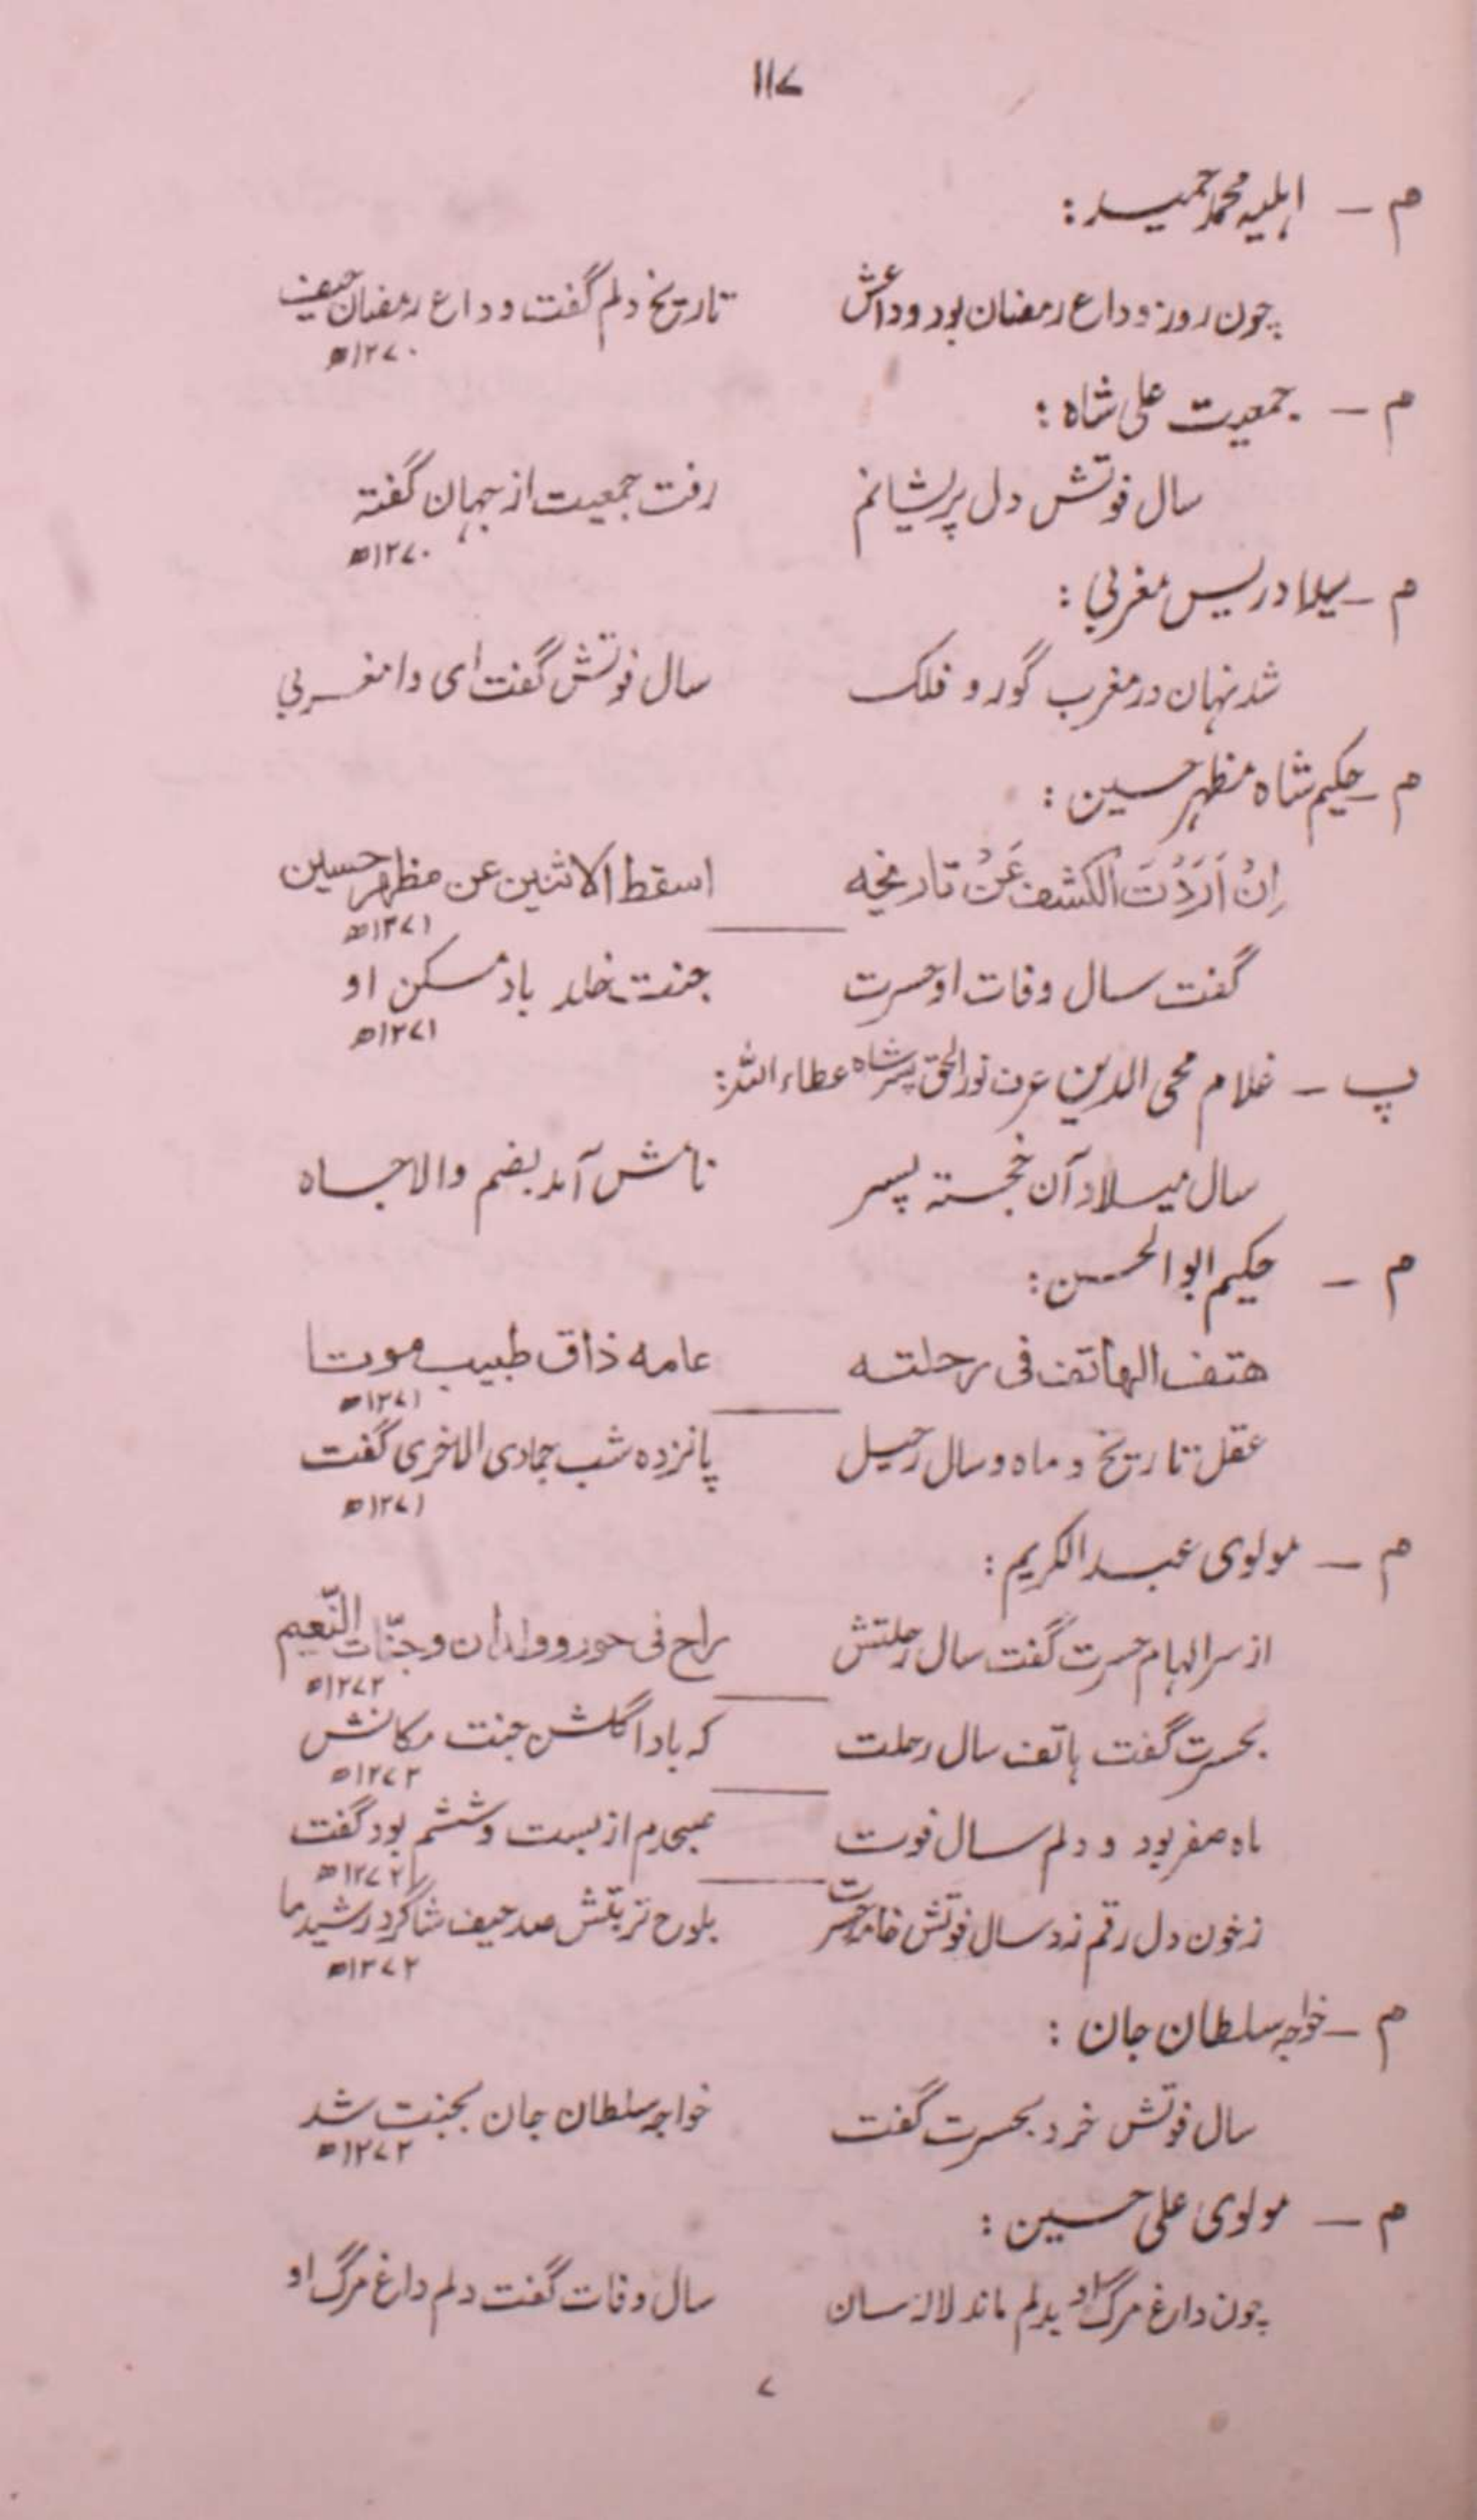 ۱۱۷
م - اہلیہ محمد حمید :
چون روز وداع رمضان بود وداعش تاریخ دلم گفت وداع رمضان حیف
۱۲۷۰ھ
م - جمعیت علی شاہ :
سال فوتش دل پریشانم رفت جمعیت از جہان گفتہ
۱۲۷۰ھ
م - ادریس مغربی :
شد نہان در مغرب گور و فلک سال فوتش گفت ای وا مغربی
م - حکیم شاہ مظہر حسین :
اِنْ اَرَدْتَ الکشف عَنْ تاریخہ اسقط الاثنین عن مظہر حسین
۱۲۷۱ھ
گفت سال وفات او حسرت جنت خلد باد مسکن او
۱۲۷۱ھ
پ - غلام محی الدین عرف نور الحق پسر شاہ عطاء اللہ :
سال میلاد آن خجستہ پسر نامش آمد بضم والا جاہ
م - حکیم ابو الحسن :
هتف الهاتف فی رحلتہ عامہ ذاق طبیب موتا
۱۲۷۱ھ
عقل تاریخ و ماہ و سال رحیل پانزدہ شب جمادی الاخری گفت
۱۲۷۱ھ
م - مولوی عبد الکریم :
از سر الہام حسرت گفت سال رحلتش راح فی حور و ولدان و جنّات النّعیم
۱۲۷۲ھ
بحسرت گفت ہاتف سال رحلت کہ بادا گلشن جنت مکانش
۱۲۷۲ھ
ماہ صفر بود و دلم سال فوت صبحدم از بست و ششم بود گفت
۱۲۷۲ھ
ز خون دل رقم زد سال فوتش خامہ حسرت بلوح تربتش صد حیف شاگرد رشید ما
۱۲۷۲ھ
م - خواجہ سلطان جان :
سال فوتش خرد بحسرت گفت خواجہ سلطان جان بجنت شد
۱۲۷۲ھ
م - مولوی علی حسین :
چون داغ مرگ او بدلم ماند لالہ سان سال وفات گفت دلم داغ مرگ او
۷